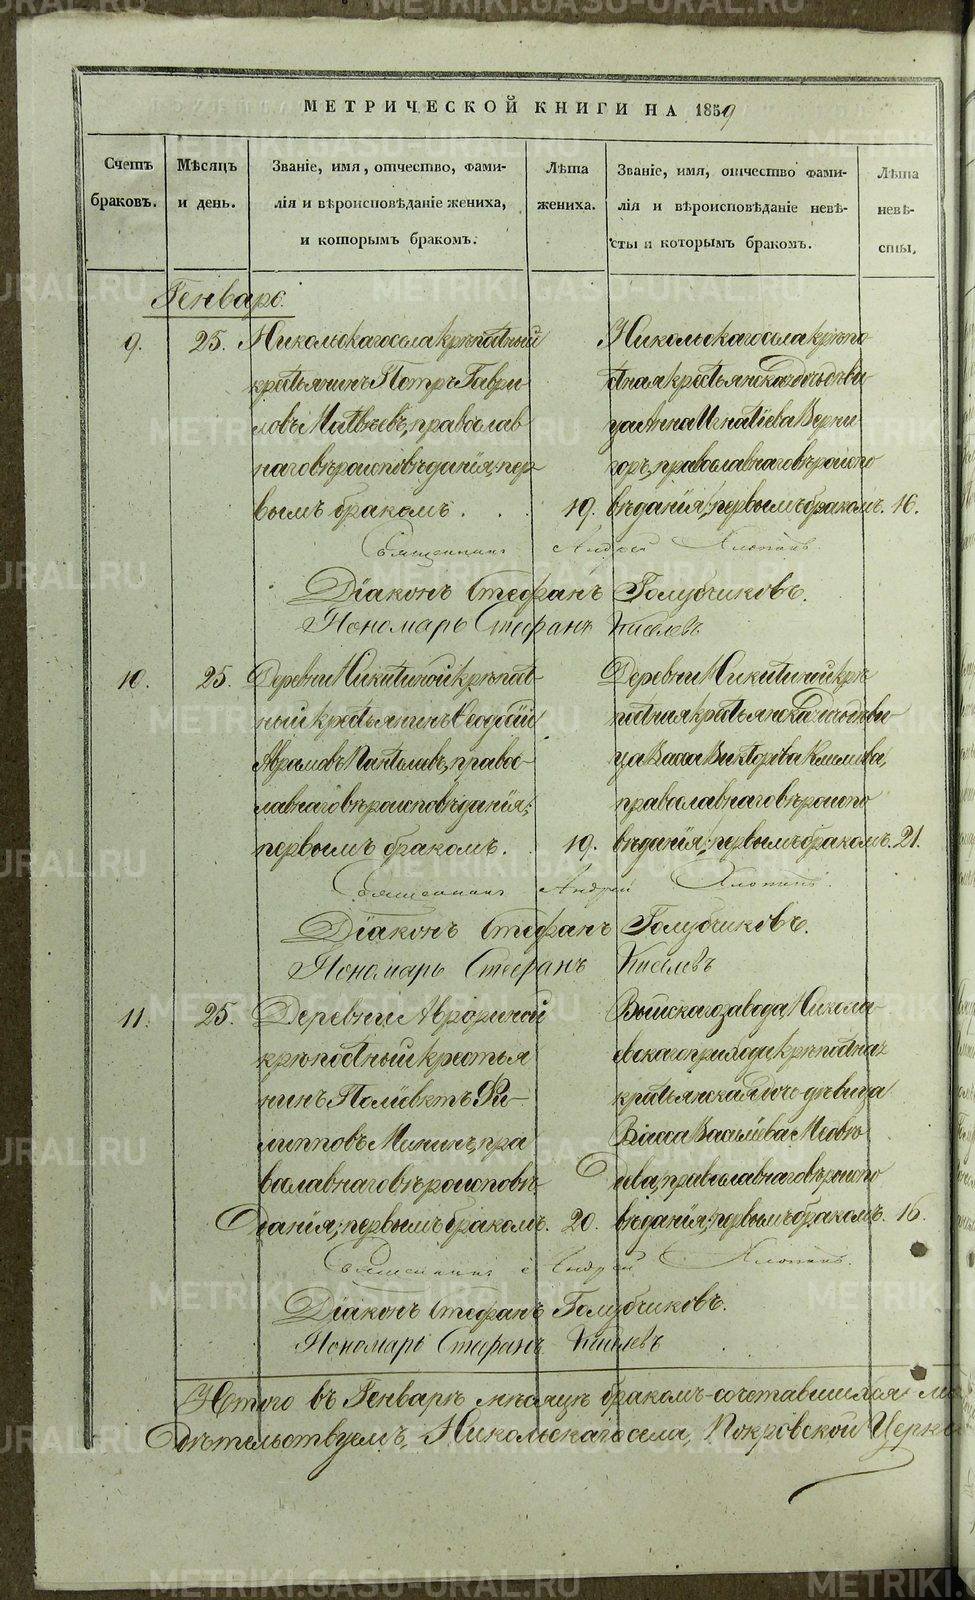 МЕТРИЧЕСКОЙ КНИГИ НА 1859
Счетъ браковъ.
Мѣсяцъ и день.
Званіе, имя, отчество, фами-
лія и вѣроисповѣданіе жениха,
и которымъ бракомъ.
Лѣта жениха.
Званіе, имя, отчество фами-
лія и вѣроисповѣданіе невѣ-
сты и которымъ бракомъ.
Лѣта невѣ-
сты.
Генварь.
9. 25. Никольскаго села крѣпостный
крестьянинъ Петръ Гаври
ловъ Матвѣевъ, православ
наго вѣроисповѣданія, пер
вымъ бракомъ. 19.
Никольскаго села крѣпо
стная крестьянская дочь дѣви
ца Анна Игнатіева Верни
горъ, православнаго вѣроиспо
вѣданія, первымъ бракомъ. 16.
Священникъ Андрей
Діаконъ Стефанъ Голубчиковъ.
Пономарь Стефанъ Киселевъ
10. 25. Деревни Никитиной крѣпост
ный крестьянинъ Феодосій
Аврамовъ Пантелеевъ, право-
славнаго вѣроисповѣданія;
первымъ бракомъ. 19.
Деревни Никитиной крѣ
постная крестьянская дочь дѣви
ца Васса Викторова Климова,
православнаго вѣроиспо
вѣданія, первымъ бракомъ. 21.
Священникъ Андрей
Діаконъ Стефанъ Голубчиковъ.
Пономарь Стефанъ Киселевъ
11. 25. Деревни
крѣпостный крестья
нинъ Поліевктъ Фи-
липповъ Мининъ, пра
вославнаго вѣроисповѣ
данія; первымъ бракомъ. 20.
Выйскаго завода Никола
евскаго прихода крѣпостная
крестьянская дочь дѣвица
Васса Васильева
православнаго вѣроиспо
вѣданія, первымъ бракомъ. 16.
Священникъ Андрей
Діаконъ Стефанъ Голубчиковъ.
Пономарь Стефанъ Киселевъ
Итого въ Генварѣ мѣсяцѣ бракомъ сочетавшихся
дѣтельствуемъ, Никольскаго села, Покровской Церкви
METRIKI.GASO-URAL.RU